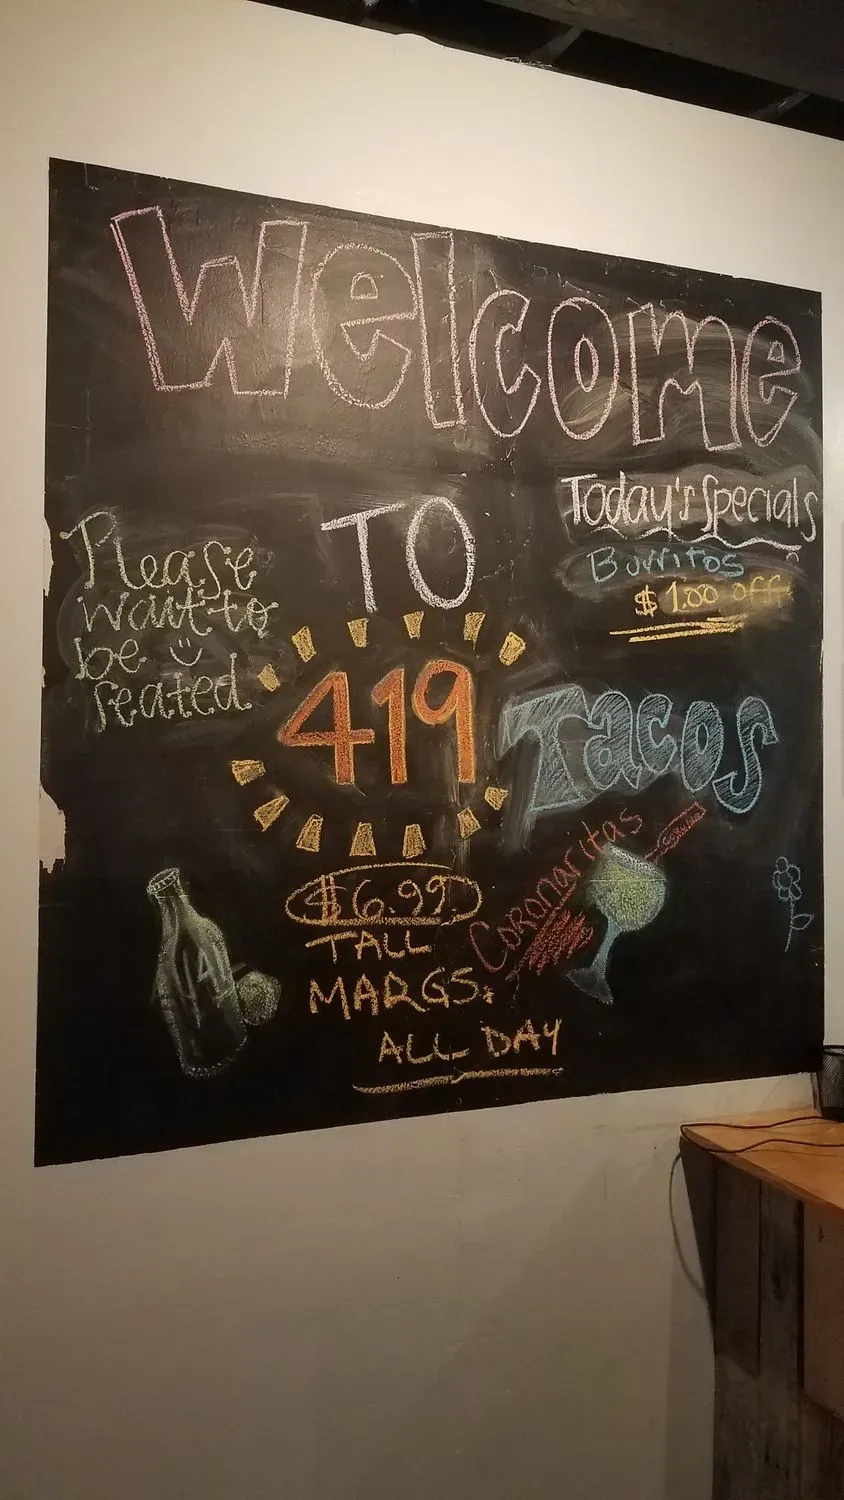 Welcome
TO
Today's Specials
Burritos
$1.00 off
Please
wait to
be
seated
419
Tacos
Coronaritas
$6.99
TALL
MARGS.
ALL DAY